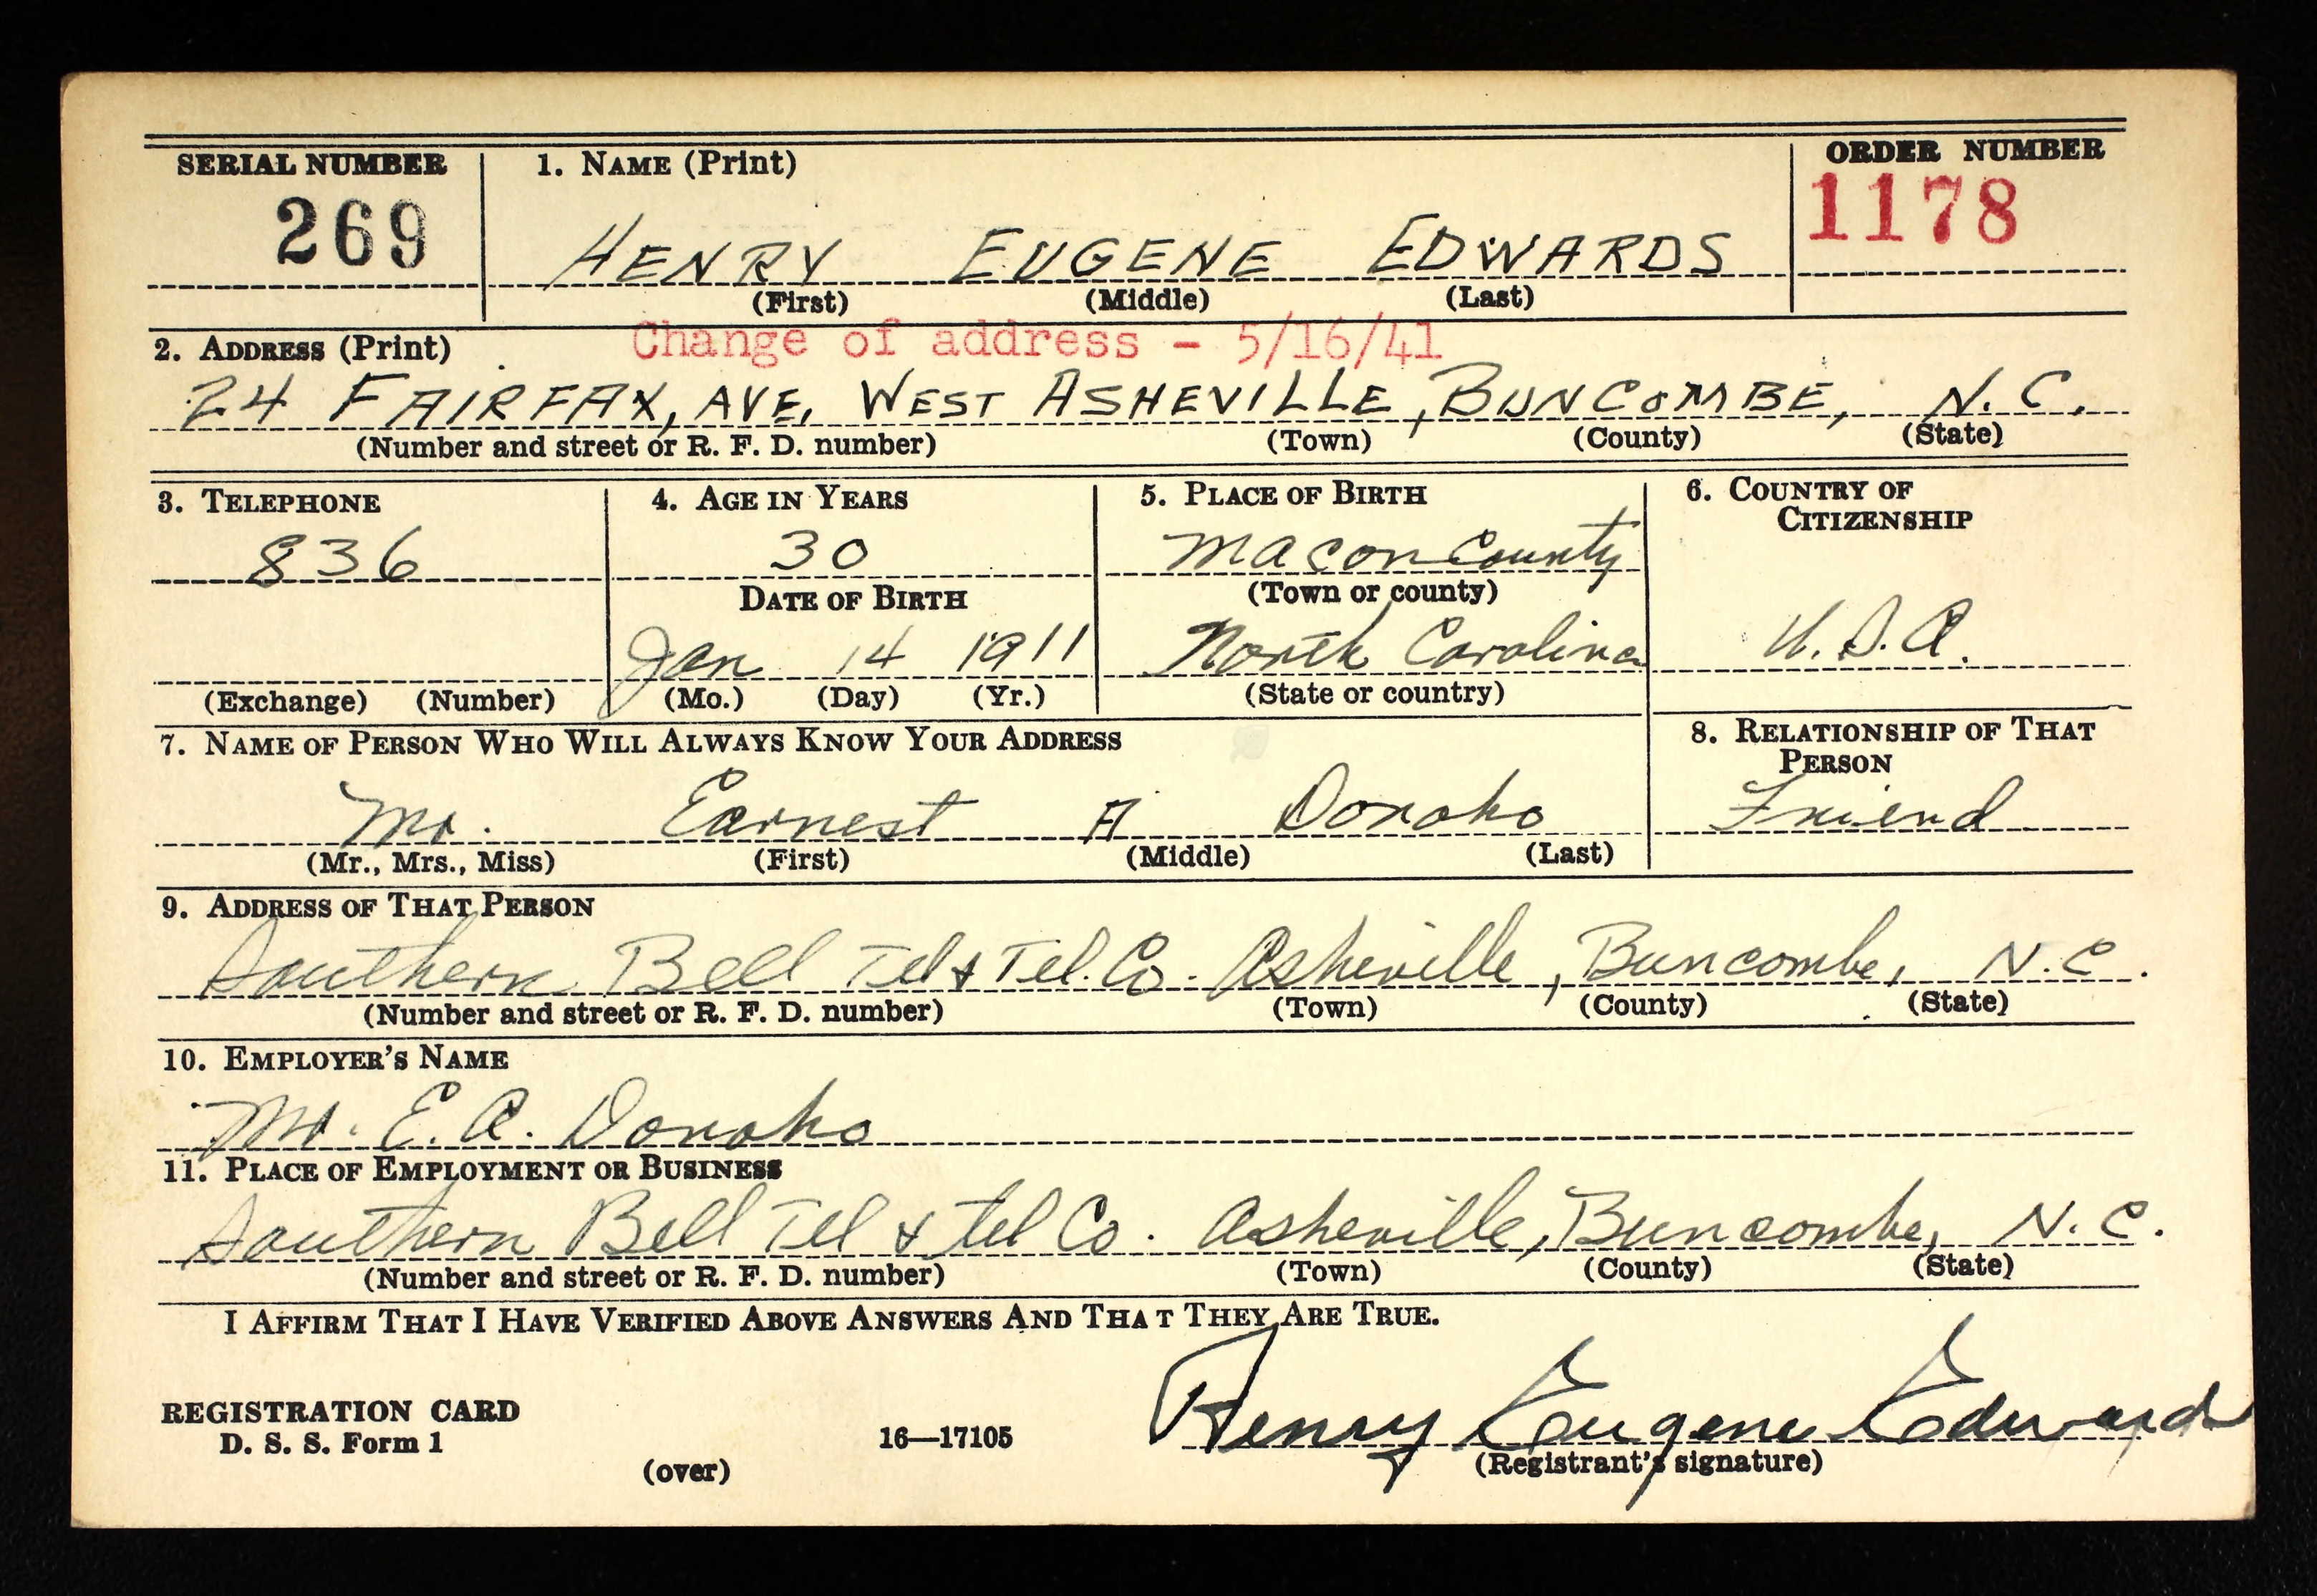 SERIAL NUMBER 1. NAME (Print) ORDER NUMBER
269 HENRY EUGENE EDWARDS 1178
(First) (Middle) (Last)
2. ADDRESS (Print) Change of address - 5/16/41
24 FAIRFAX, AVE, WEST ASHEVILLE, BUNCOMBE, N.C.
(Number and street or R. F. D. number) (Town) (County) (State)
3. TELEPHONE 4. AGE IN YEARS 5. PLACE OF BIRTH 6. COUNTRY OF CITIZENSHIP
836 30 Macon County
DATE OF BIRTH (Town or county)
Jan 14 1911 North Carolina U.S.A.
(Exchange) (Number) (Mo.) (Day) (Yr.) (State or country)
7. NAME OF PERSON WHO WILL ALWAYS KNOW YOUR ADDRESS 8. RELATIONSHIP OF THAT PERSON
Mr. Earnest A Donoho Friend
(Mr., Mrs., Miss) (First) (Middle) (Last)
9. ADDRESS OF THAT PERSON
Southern Bell Tel & Tel. Co. Asheville, Buncombe, N.C.
(Number and street or R. F. D. number) (Town) (County) (State)
10. EMPLOYER'S NAME
Mr. E. A. Donoho
11. PLACE OF EMPLOYMENT OR BUSINESS
Southern Bell Tel & tel Co. Asheville, Buncombe, N.C.
(Number and street or R. F. D. number) (Town) (County) (State)
I AFFIRM THAT I HAVE VERIFIED ABOVE ANSWERS AND THAT THEY ARE TRUE.
REGISTRATION CARD
D. S. S. Form 1 16—17105 Henry Eugene Edward
(over) (Registrant's signature)